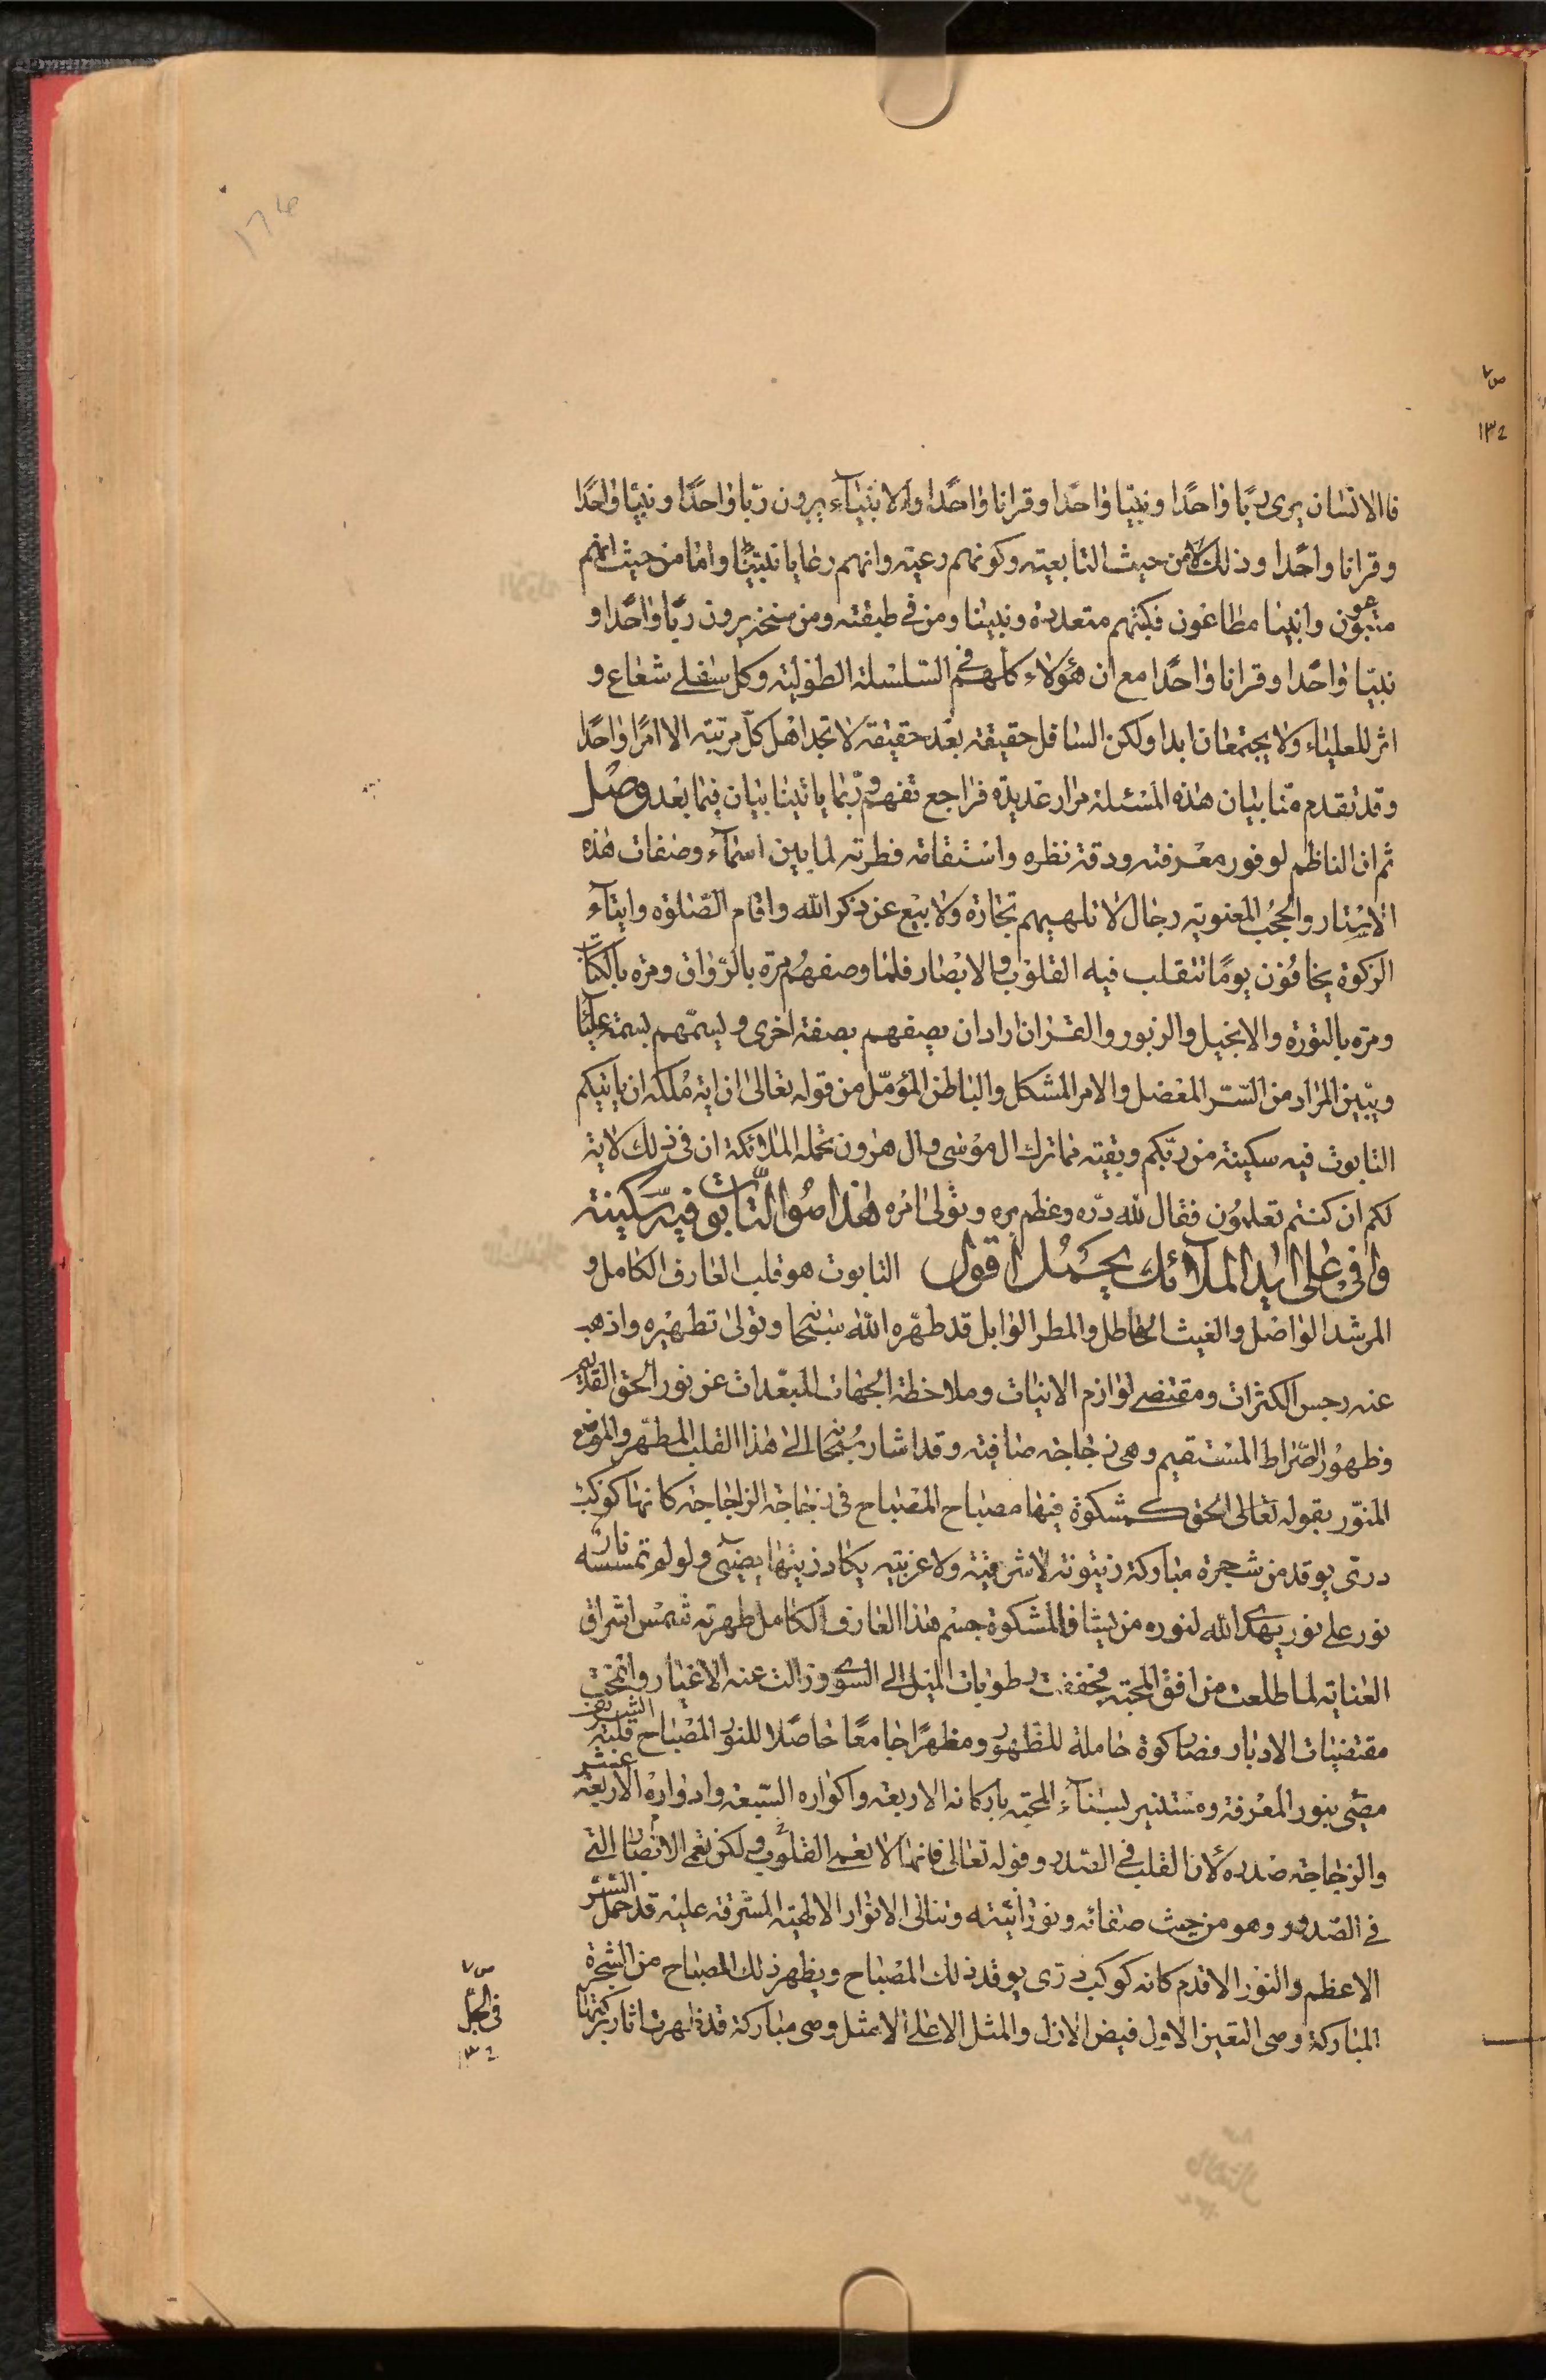 فالانسان يرى ربّا واحدًا ونبيّا واحدًا وقرانا واحدًا والانبيآء يرون ربّا واحدًا ونبيّا واحدًا
وقرانا واحدا وذلك لا من حيث التابعيته وكونهم رعيته وانهم رعايا نبيّنا واما من حيث انهم
متبوعون وانبيا مطاعون فكثيرهم متعددة ونبينا ومن في طبقته ومن سنخه يرون ربّا واحدا و
نبيّا واحدا وقرانا واحدا مع ان هؤلاء كلهم في السّلسلة الطوليّة وكل سفلى شعاع و
اثر للعلياء ولا يجتمعان ابدا ولكن السافل حقيقة بعد حقيقة لا تجد اهل كلّ مرتبته الا امرًا واحدًا
وقد تقدم منّا بيان هذه المسئلة مرارا عديدة فراجع تفهم وربّما ياتينا بيان فيما بعد وصل
ثم ان الناظم لوفور معرفته ودقة نظره واستقامة فطرته لما بين اسمآء وصفات هذه
الاستار والحجب المعنوية رجال لا تلهيهم تجارة ولا بيع عن ذكر الله واقام الصّلوة وايتآء
الزكوة يخافون يومًا تتقلب فيه القلوب والابصار فلما وصفهم مرّة بالرواق ومرة بالكتاب
ومرة بالتورة والانجيل والزبور والقران اراد ان يصفهم بصفة اخرى ويسمّهم بسمة عليا
ويبين المراد من السّر المعضل والامر المشكل والباطن المؤمّل من قوله تعالى ان اية ملكه ان ياتيكم
التابوت فيه سكينة من ربّكم وبقية مما ترك ال موسى وال هرون تحمله الملائكة ان في ذلك لاية
لكم ان كنتم تعلمون فقال لله درّه وعظم بره وتولى امره هذا صوا التّابوت فيه سّكينة
وافى على ايد الملآئك يحمل اقول التابوت هو قلب العارف الكامل و
المرشد الواصل والغيث الهاطل والمطر الوابل قد طهّره الله سبحانه وتولى تطهيره واذهب
عنه رجس الكثرات ومقتضى لوازم الانيات وملاحظة الجهات المبعّدات عن نور الحق القديم
وظهور الصّراط المستقيم وهى زجاجة صافية وقد اشار سبحانه الى هذا القلب المطهّر والموضع
المنوّر بقوله تعالى الحق كمشكوة فيها مصباح المصباح في زجاجة الزجاجة كانها كوكب
درّى يوقد من شجرة مباركة زيتونة لا شرقية ولا غربية يكاد زيتها يضئ ولو لم تمسسه نار
نور على نور يهدى الله لنوره من يشا فالمشكوة جسم هذا العارف الكامل طهرته شمس اشراق
العناية لما طلعت من افق المحبة فجففت رطوبات الميل الى السوى وزالت عنه الاغيار وانمحت
مقتضيات الادبار فصار كوة حاملة للظهور ومظهرًا جامعًا حاصلا للنور المصباح قلبه الشريف
مضئ بنور المعرفة ومستنير بسناء المحبّة باركانه الاربعة واكواره السّبعة وادواره الاربعة عشر
والزجاجة صدره لان القلب في الصّدر وقوله تعالى فانها لا تعمى الابصار ولكن تعمى القلوب التي
في الصّدور وهو من حيث صفائه ونورانيته وتتالى الانوار الالهية المشرقة عليه قد حمل السّر
الاعظم والنور الاقدم كانه كوكب درّى يوقد ذلك المصباح ويظهر ذلك المصباح من الشجرة
المباركة وهى التعين الاول فيض الازل والمثل الاعلى الامثل وهى مباركة قد ظهرت اثار بركتها